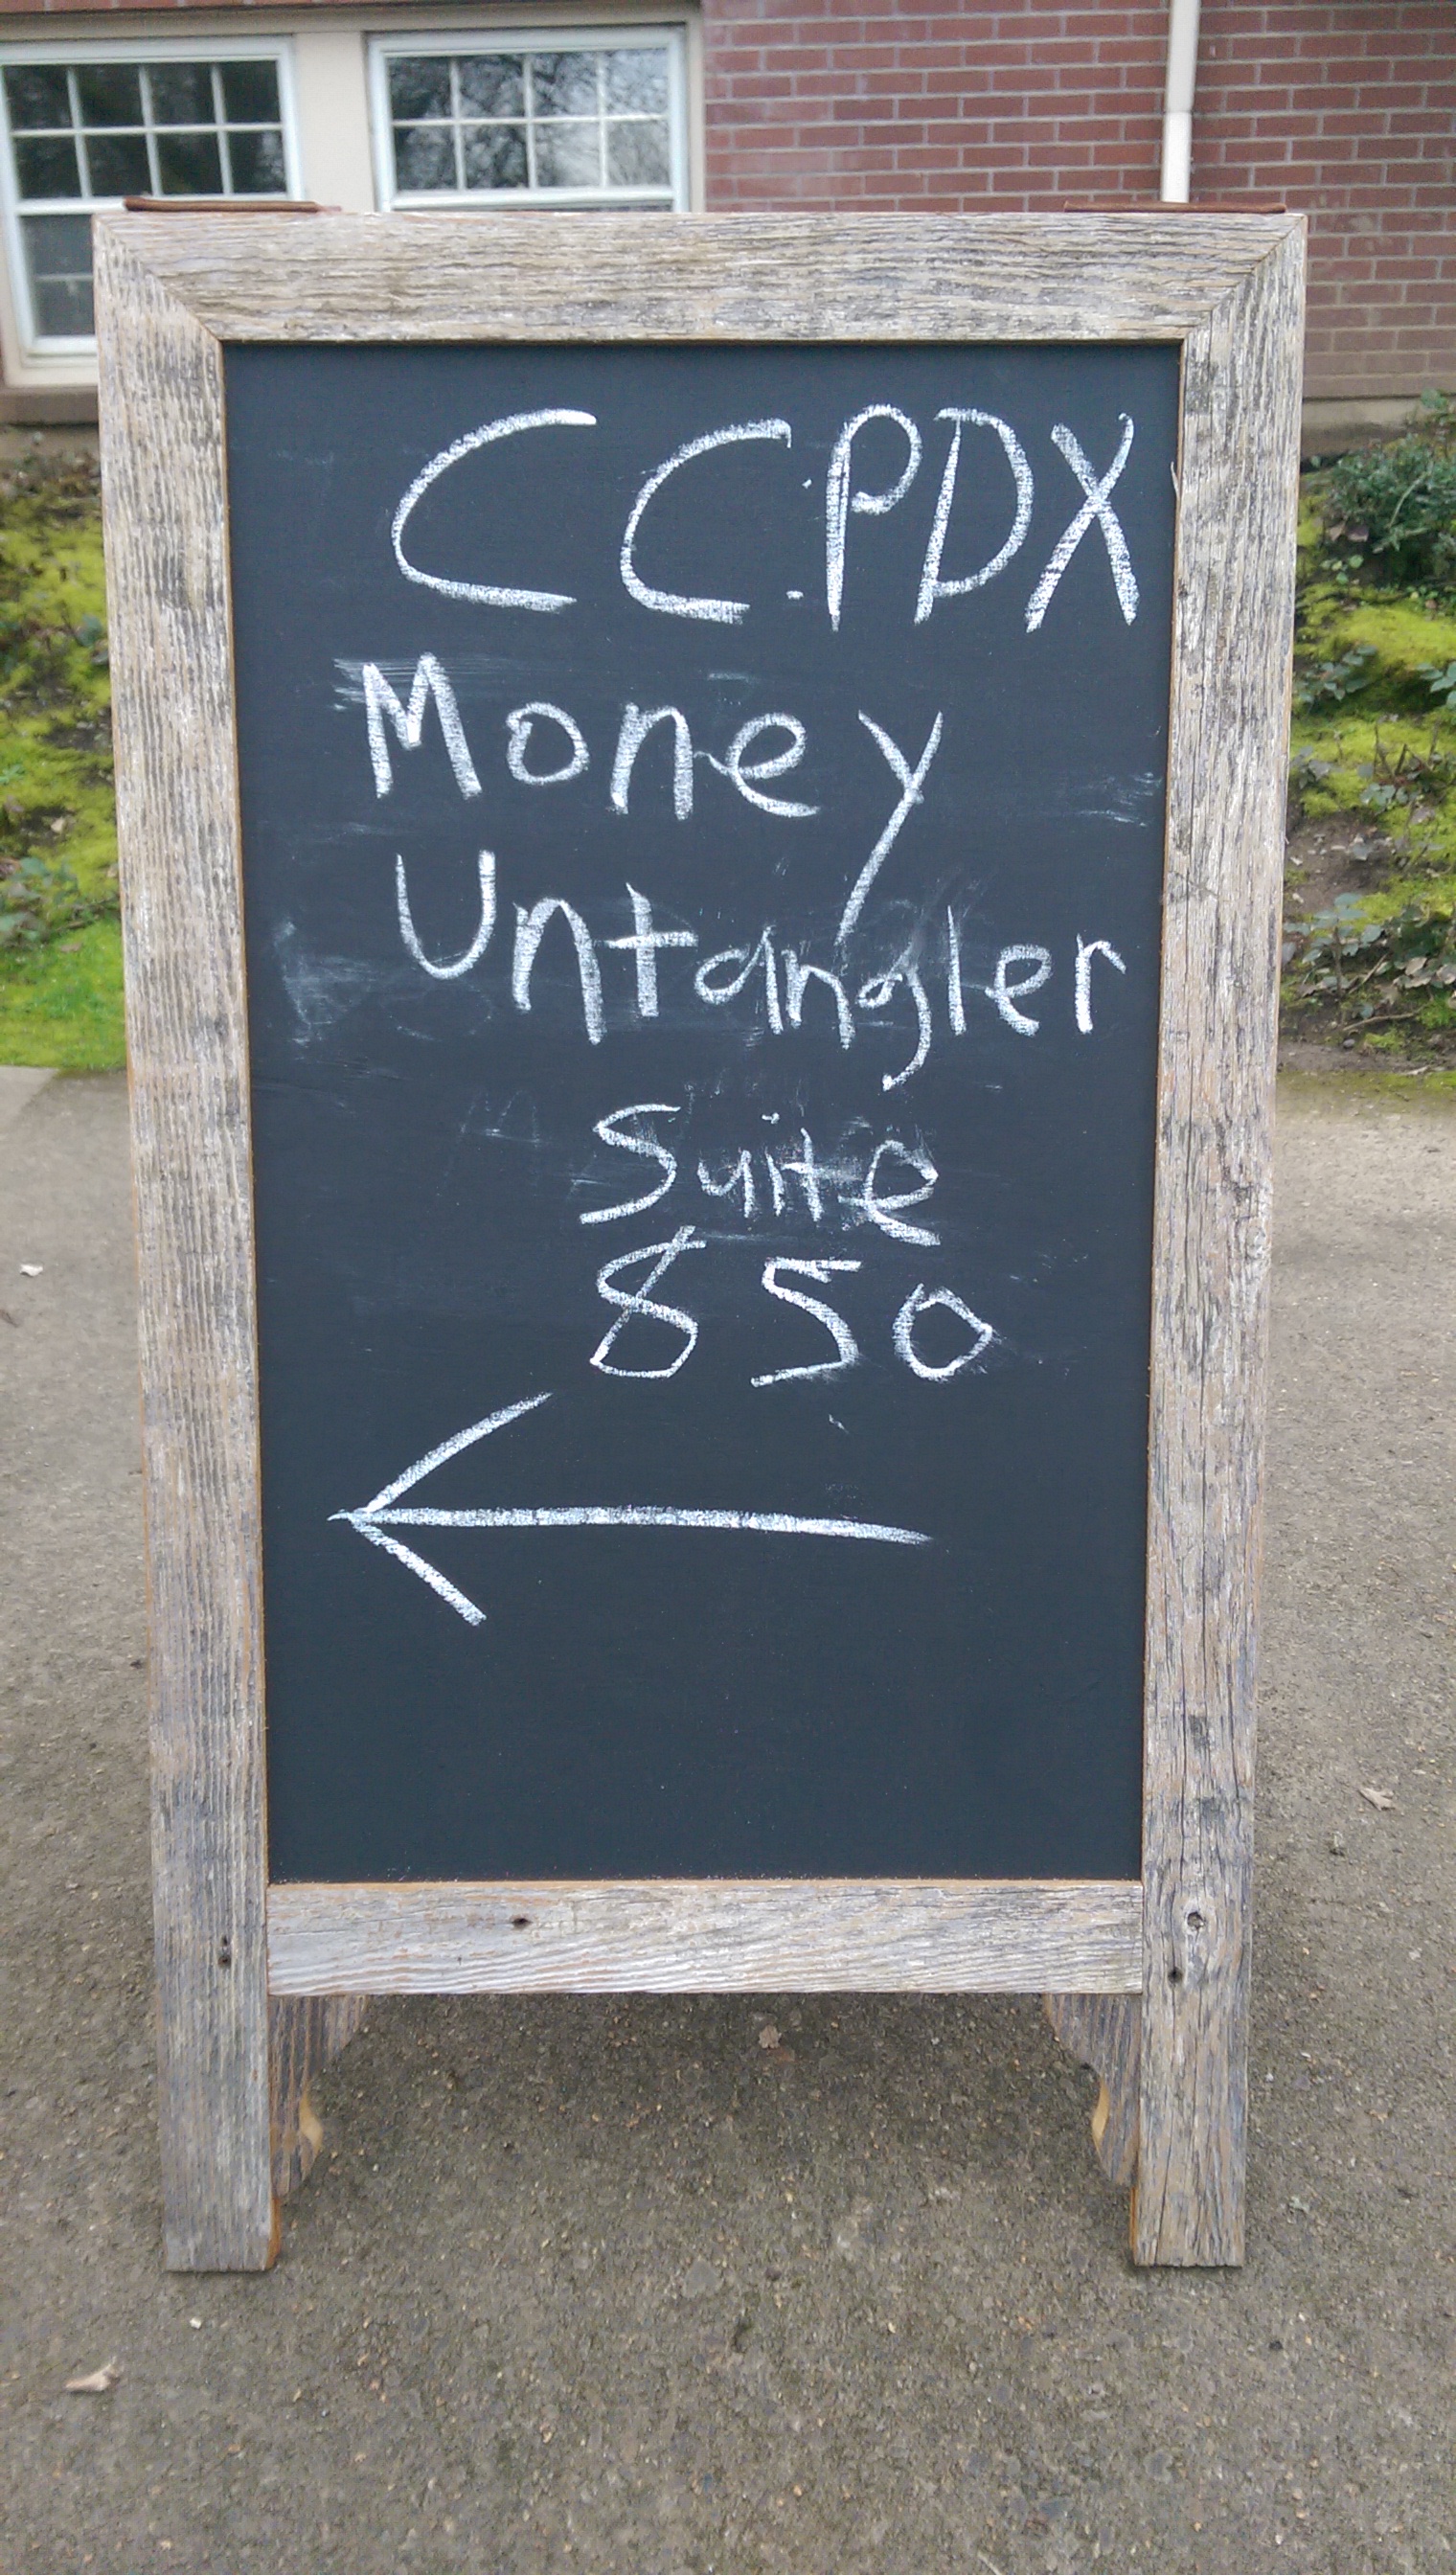 CC:PDX
Money
Untangler
Suite
850